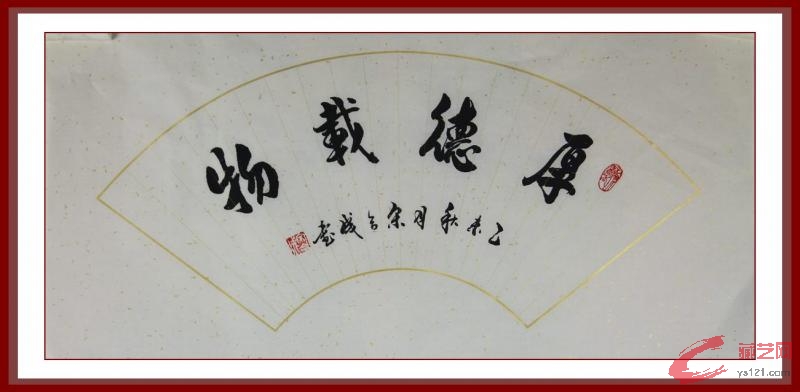 厚德載物
乙未秋月宗言成書
藏艺网
ys121.com